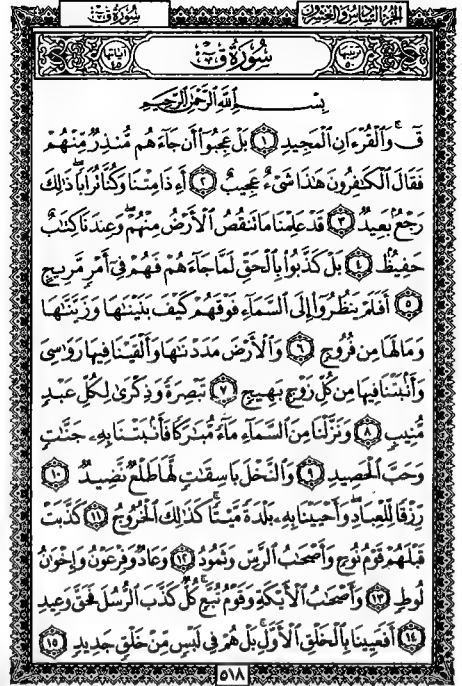 الجزء السادس والعشرون
سورة ق
ترتيبها ٥٠
سورة ق
آياتها ٤٥
بِسْمِ اللَّهِ الرَّحْمَٰنِ الرَّحِيمِ
قٓ ۚ وَٱلْقُرْءَانِ ٱلْمَجِيدِ ١ بَلْ عَجِبُوٓا۟ أَن جَآءَهُم مُّنذِرٌ مِّنْهُمْ
فَقَالَ ٱلْكَٰفِرُونَ هَٰذَا شَىْءٌ عَجِيبٌ ٢ أَءِذَا مِتْنَا وَكُنَّا تُرَابًا ۖ ذَٰلِكَ
رَجْعٌۢ بَعِيدٌ ٣ قَدْ عَلِمْنَا مَا تَنقُصُ ٱلْأَرْضُ مِنْهُمْ ۖ وَعِندَنَا كِتَٰبٌ
حَفِيظٌۢ ٤ بَلْ كَذَّبُوا۟ بِٱلْحَقِّ لَمَّا جَآءَهُمْ فَهُمْ فِىٓ أَمْرٍ مَّرِيجٍ
٥ أَفَلَمْ يَنظُرُوٓا۟ إِلَى ٱلسَّمَآءِ فَوْقَهُمْ كَيْفَ بَنَيْنَٰهَا وَزَيَّنَّٰهَا
وَمَا لَهَا مِن فُرُوجٍ ٦ وَٱلْأَرْضَ مَدَدْنَٰهَا وَأَلْقَيْنَا فِيهَا رَوَٰسِىَ
وَأَنۢبَتْنَا فِيهَا مِن كُلِّ زَوْجٍۭ بَهِيجٍ ٧ تَبْصِرَةً وَذِكْرَىٰ لِكُلِّ عَبْدٍ
مُّنِيبٍ ٨ وَنَزَّلْنَا مِنَ ٱلسَّمَآءِ مَآءً مُّبَٰرَكًا فَأَنۢبَتْنَا بِهِۦ جَنَّٰتٍ
وَحَبَّ ٱلْحَصِيدِ ٩ وَٱلنَّخْلَ بَاسِقَٰتٍ لَّهَا طَلْعٌ نَّضِيدٌ ١٠
رِّزْقًا لِّلْعِبَادِ ۖ وَأَحْيَيْنَا بِهِۦ بَلْدَةً مَّيْتًا ۚ كَذَٰلِكَ ٱلْخُرُوجُ ١١ كَذَّبَتْ
قَبْلَهُمْ قَوْمُ نُوحٍ وَأَصْحَٰبُ ٱلرَّسِّ وَثَمُودُ ١٢ وَعَادٌ وَفِرْعَوْنُ وَإِخْوَٰنُ
لُوطٍ ١٣ وَأَصْحَٰبُ ٱلْأَيْكَةِ وَقَوْمُ تُبَّعٍ ۚ كُلٌّ كَذَّبَ ٱلرُّسُلَ فَحَقَّ وَعِيدِ
١٤ أَفَعَيِينَا بِٱلْخَلْقِ ٱلْأَوَّلِ ۚ بَلْ هُمْ فِى لَبْسٍ مِّنْ خَلْقٍ جَدِيدٍ ١٥
٥١٨